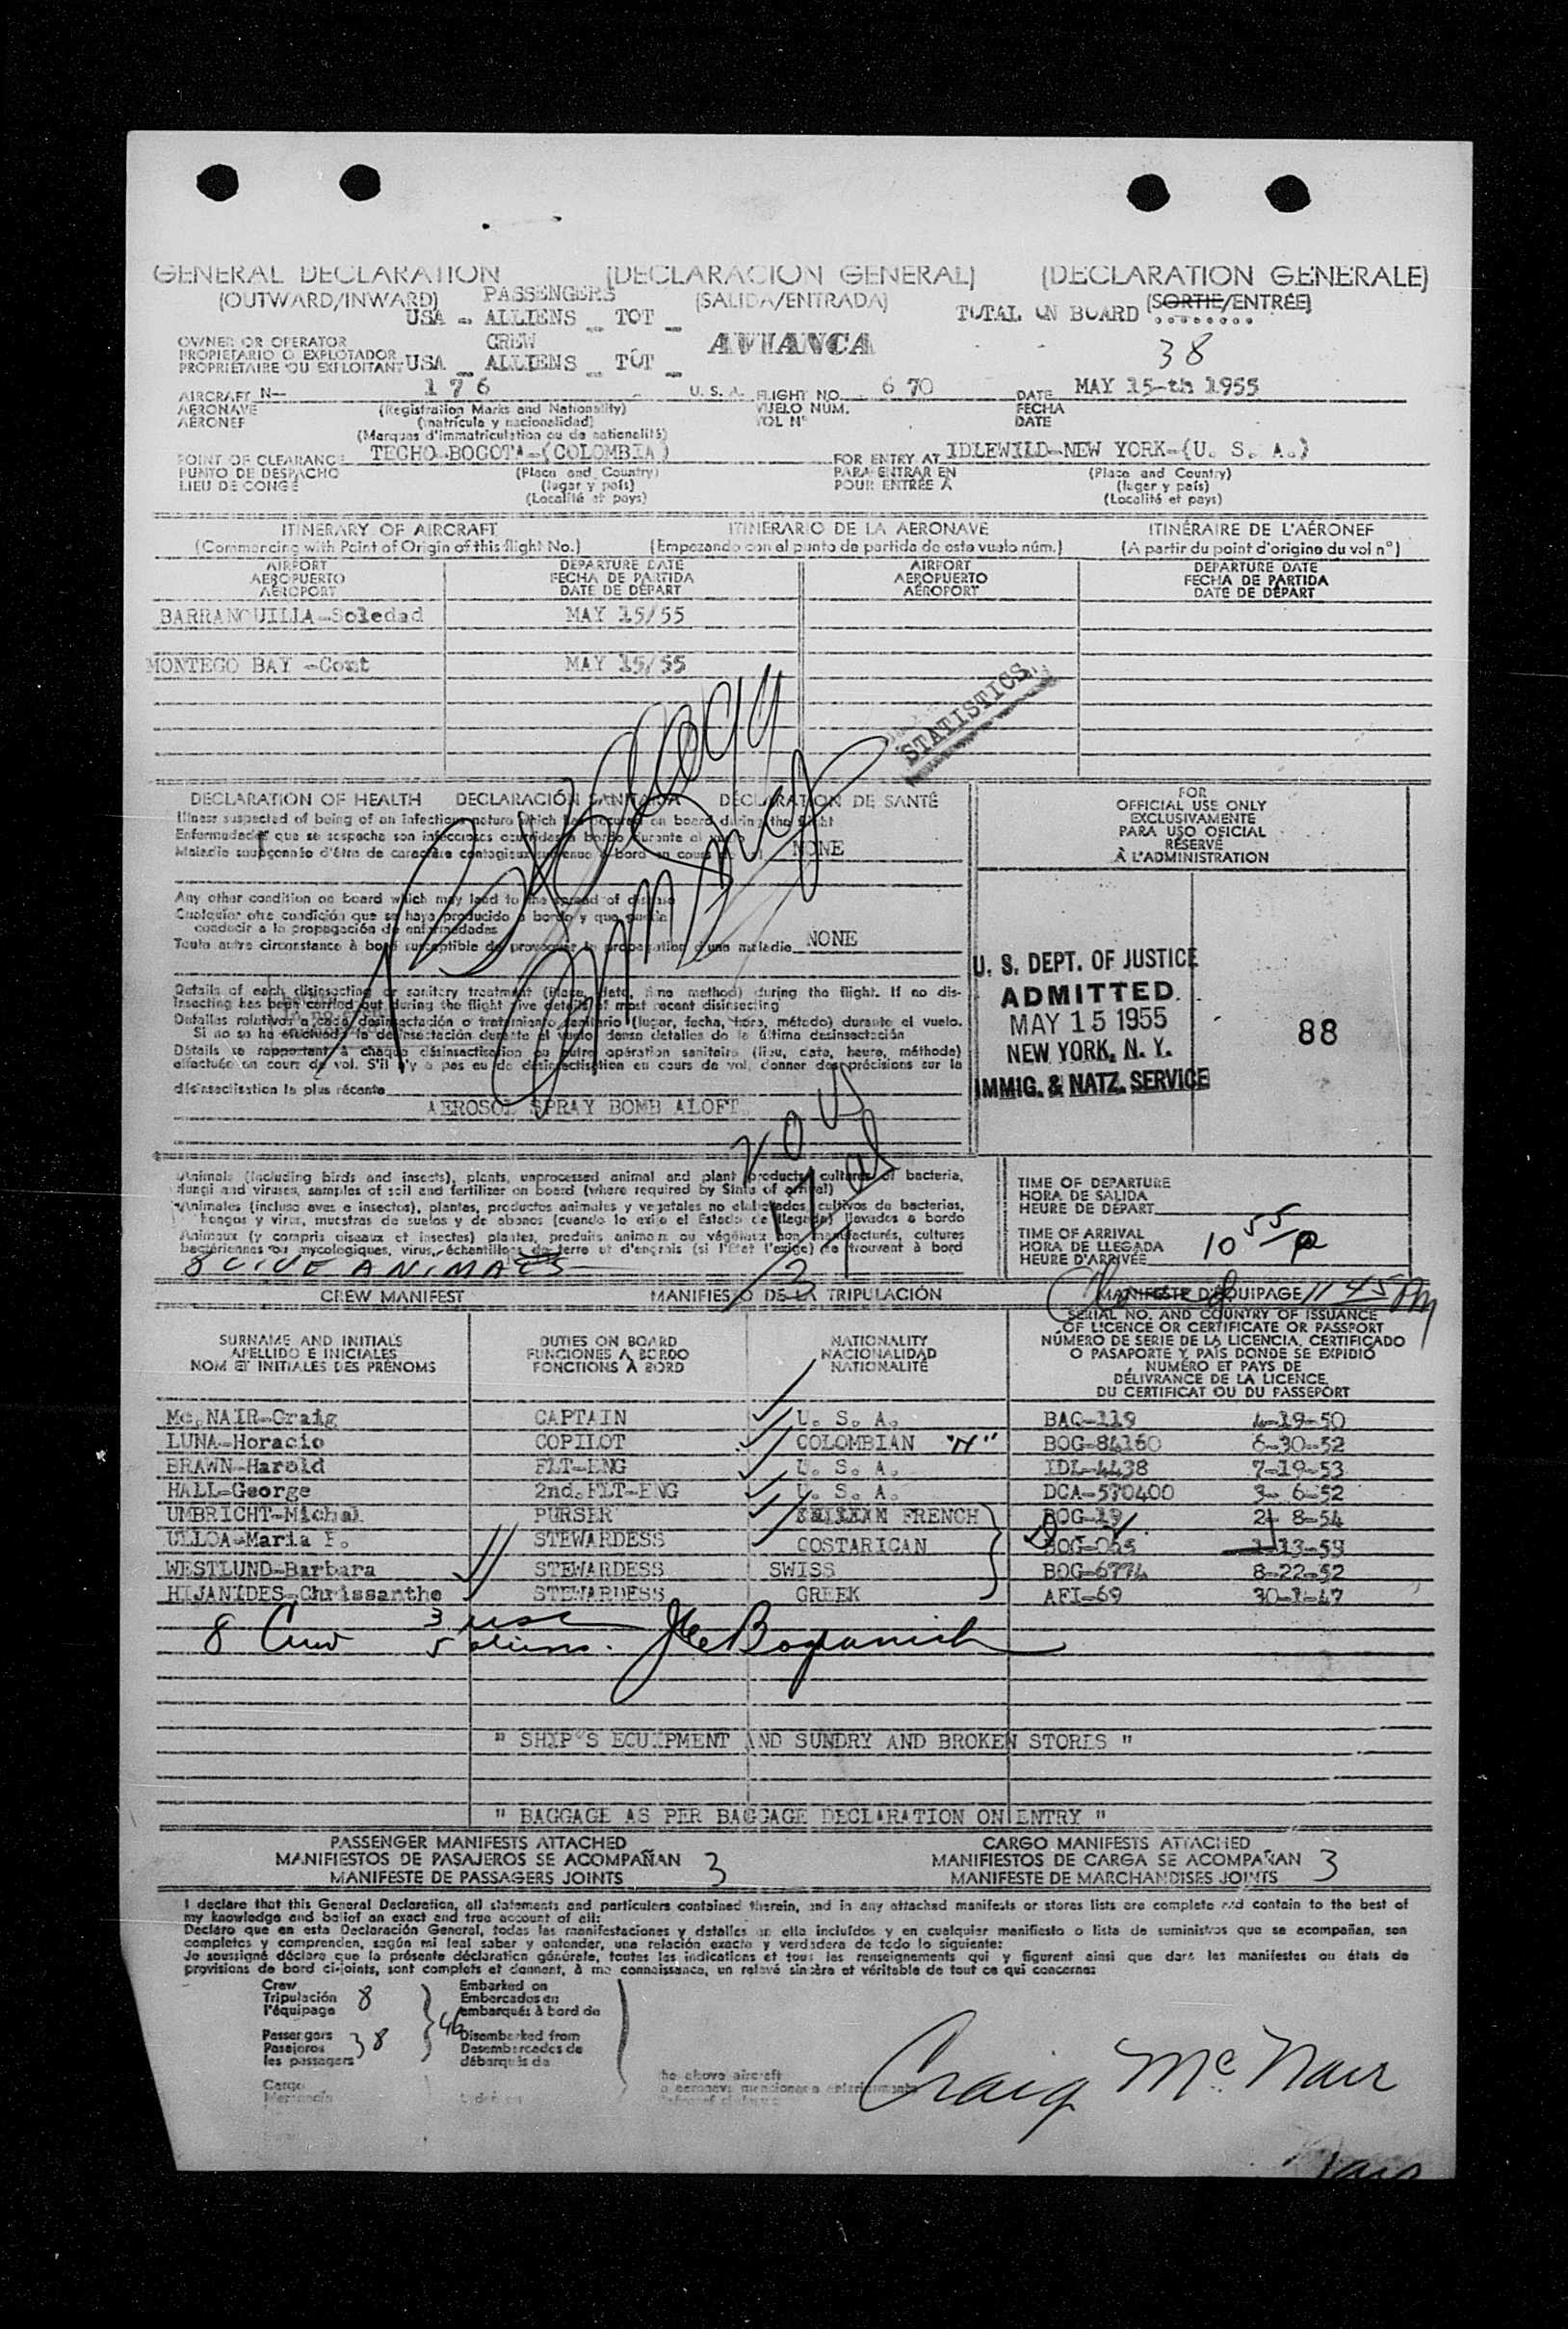 GENERAL DECLARATION (DECLARACION GENERAL) (DECLARATION GENERALE)
(OUTWARD/INWARD) PASSENGERS (SALIDA/ENTRADA) TOTAL ON BOARD (SORTIE/ENTRÉE)
USA - ALLIENS - TOT -
OWNER OR OPERATOR CREW AVIANCA 38
PROPIETARIO O EXPLOTADOR
PROPRIETAIRE OU EXPLOITANT USA - ALLIENS - TOT -
AIRCRAFT N- 176 U. S. A. FLIGHT NO. 670 DATE MAY 15-th 1955
AERONAVE (Registration Marks and Nationality) VUELO NUM. FECHA
AÉRONEF (matrícula y nacionalidad) VOL N° DATE
(Marques d'immatriculation ou de nationalité)
POINT OF CLEARANCE TECHO-BOGOTA-(COLOMBIA) FOR ENTRY AT IDLEWILD-NEW YORK-(U. S. A.)
PUNTO DE DESPACHO (Place and Country) PARA ENTRAR EN (Place and Country)
LIEU DE CONGÉ (lugar y país) POUR ENTRÉE A (lugar y país)
(Localité et pays) (Localité et pays)
ITINERARY OF AIRCRAFT ITINERARIO DE LA AERONAVE ITINÉRAIRE DE L'AÉRONEF
(Commencing with Point of Origin of this flight No.) (Empezando con el punto de partida de este vuelo núm.) (A partir du point d'origine du vol n°)
AIRPORT DEPARTURE DATE AIRPORT DEPARTURE DATE
AEROPUERTO FECHA DE PARTIDA AEROPUERTO FECHA DE PARTIDA
AÉROPORT DATE DE DÉPART AÉROPORT DATE DE DÉPART
BARRANQUILLA-Soledad MAY 15/55
MONTEGO BAY -Cont MAY 15/55
STATISTICS
DECLARATION OF HEALTH DECLARACIÓN SANITARIA DÉCLARATION DE SANTÉ
Illness suspected of being of an infectious nature which has occured on board during the flight
Enfermedades que se sospecha son infecciosas ocurridas a bordo durante el vuelo
Maladie soupçonnée d'être de caractère contagieux survenue à bord en cours de vol NONE
FOR
OFFICIAL USE ONLY
EXCLUSIVAMENTE
PARA USO OFICIAL
RÉSERVÉ
À L'ADMINISTRATION
Any other condition on board which may lead to the spread of disease
Cualquier otra condición que se haya producido a bordo y que pueda
conducir a la propagación de enfermedades
Toute autre circonstance à bord susceptible de provoquer la propagation d'une maladie NONE
U. S. DEPT. OF JUSTICE
ADMITTED
MAY 15 1955
NEW YORK, N. Y.
IMMIG. & NATZ. SERVICE
88
Details of each disinsecting or sanitary treatment (place, date, time method) during the flight. If no dis-
insecting has been carried out during the flight give details of most recent disinsecting
Detalles relativos a cada desinsectación o tratamiento sanitario (lugar, fecha, hora, método) durante el vuelo.
Si no se ha efectuado la desinsectación durante el vuelo dense detalles de la última desinsectación
Détails se rapportant à chaque désinsectisation ou autre opération sanitaire (lieu, date, heure, méthode)
effectuée en cours de vol. S'il n'y a pas eu de desinsectisation en cours de vol, donner des précisions sur la
désinsectisation la plus récente
AEROSOL SPRAY BOMB ALOFT
Animals (including birds and insects), plants, unprocessed animal and plant products, cultures of bacteria,
fungi and viruses, samples of soil and fertilizer on board (where required by State of arrival)
Animales (incluso aves e insectos), plantas, productos animales y vegetales no elaborados, cultivos de bacterias,
hongos y virus, muestras de suelos y de abonos (cuando lo exija el Estado de llegada) llevados a bordo
Animaux (y compris oiseaux et insectes) plantes, produits animaux ou végétaux non manufacturés, cultures
bactériennes ou mycologiques, virus, échantillons de terre et d'engrais (si l'Etat l'exige) se trouvant à bord
8 LIVE ANIMALS
TIME OF DEPARTURE
HORA DE SALIDA
HEURE DE DÉPART
TIME OF ARRIVAL
HORA DE LLEGADA
HEURE D'ARRIVÉE 10 55 p
3
CREW MANIFEST MANIFIESTO DE LA TRIPULACIÓN MANIFESTE D'ÉQUIPAGE 1145 PM
SURNAME AND INITIALS DUTIES ON BOARD NATIONALITY SERIAL NO. AND COUNTRY OF ISSUANCE
APELLIDO E INICIALES FUNCIONES A BORDO NACIONALIDAD OF LICENCE OR CERTIFICATE OR PASSPORT
NOM ET INITIALES DES PRÉNOMS FONCTIONS À BORD NATIONALITÉ NÚMERO DE SERIE DE LA LICENCIA, CERTIFICADO
O PASAPORTE Y PAÍS DONDE SE EXPIDIÓ
NUMÉRO ET PAYS DE
DÉLIVRANCE DE LA LICENCE,
DU CERTIFICAT OU DU PASSEPORT
Mc.NAIR-Craig CAPTAIN U. S. A. BAQ-119 4-19-50
LUNA-Horacio COPILOT COLOMBIAN "H" BOG-84160 6-30-52
BRAWN-Harold FLT-ENG U. S. A. IDL-4438 7-19-53
HALL-George 2nd.FLT-ENG U. S. A. DCA-570400 3- 6-52
UMBRICHT-Michal PURSER FRENCH BOG-19 2- 8-54
ULLOA-Maria E. STEWARDESS COSTARICAN BOG-065
WESTLUND-Barbara STEWARDESS SWISS BOG-6774 8-22-52
HIJANIDES-Chrissanthe STEWARDESS GREEK AFI-69 30-1-47
8 Crew 3 usc
5 aliens.
" SHIP'S ECUIPMENT AND SUNDRY AND BROKEN STORES "
" BAGGAGE AS PER BAGGAGE DECLARATION ON ENTRY "
PASSENGER MANIFESTS ATTACHED CARGO MANIFESTS ATTACHED
MANIFIESTOS DE PASAJEROS SE ACOMPAÑAN 3 MANIFIESTOS DE CARGA SE ACOMPAÑAN 3
MANIFESTE DE PASSAGERS JOINTS MANIFESTE DE MARCHANDISES JOINTS
I declare that this General Declaration, all statements and particulers contained therein, and in any attached manifests or stores lists are complete and contain to the best of
my knowledge and belief an exact and true account of all:
Declaro que en esta Declaración General, todas las manifestaciones y detalles en ella incluídos y en cualquier manifiesto o lista de suministros que se acompañan, son
completos y comprenden, según mi leal saber y entender, una relación exacta y verdadera de todo lo siguiente:
Je soussigné déclare que la présente déclaration générale, toutes les indications et tous les renseignements qui y figurent ainsi que dans les manifestes ou états de
provisions de bord ci-joints, sont complets et donnent, à ma connaissance, un relevé sincère et véritable de tout ce qui concerne:
Crew Embarked on
Tripulación 8 Embarcados en
l'équipage embarqués à bord de
46
Passengers Disembarked from
Pasajeros 38 Desembarcados de
les passagers débarqués de
Cargo the above aircraft
Craig Mc Nair